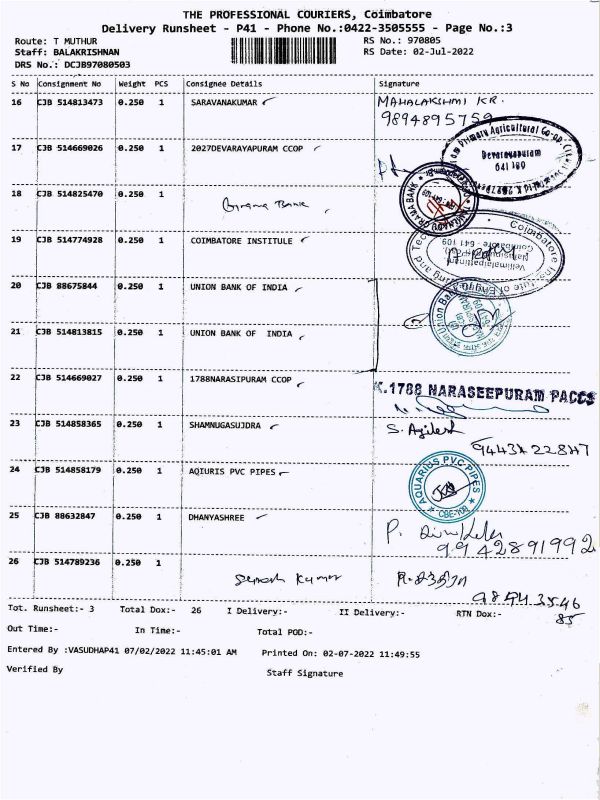 THE PROFESSIONAL COURIERS, Coimbatore
Delivery Runsheet - P41 - Phone No.:0422-3505555 - Page No.:3
Route: T MUTHUR
RS No.: 970805
Staff: BALAKRISHNAN
RS Date: 02-Jul-2022
DRS No.: DCJB97080503
S No Consignment No Weight PCS Consignee Details Signature
16 CJB 514813473 0.250 1 SARAVANAKUMAR MAHALAKSHMI KR.
9894895759
17 CJB 514669026 0.250 1 2027DEVARAYAPURAM CCOP
Primary Agricultural Co-op
Devarayapuram
641 109
18 CJB 514825470 0.250 1 Grama Bank
GRAMA BANK
19 CJB 514774928 0.250 1 COIMBATORE INSTITULE
Coimbatore Institute of Engineering and
Vellimalaipattinam
Narasipuram (Post)
Coimbatore - 641 109
20 CJB 88675844 0.250 1 UNION BANK OF INDIA
Union Bank
21 CJB 514813815 0.250 1 UNION BANK OF INDIA
22 CJB 514669027 0.250 1 1788NARASIPURAM CCOP
K.1788 NARASEEPURAM PACCS
23 CJB 514858365 0.250 1 SHAMNUGASUJDRA S. Agilesh
24 CJB 514858179 0.250 1 AQIURIS PVC PIPES
AQUARIUS PVC PIPES
CBE-109
25 CJB 88632847 0.250 1 DHANYASHREE P.
9942891992
26 CJB 514789236 0.250 1 Suresh Kumar
989443546
85
Tot. Runsheet:- 3 Total Dox:- 26 I Delivery:- II Delivery:- RTN Dox:-
Out Time:- In Time:- Total POD:-
Entered By :VASUDHAP41 07/02/2022 11:45:01 AM Printed On: 02-07-2022 11:49:55
Verified By Staff Signature